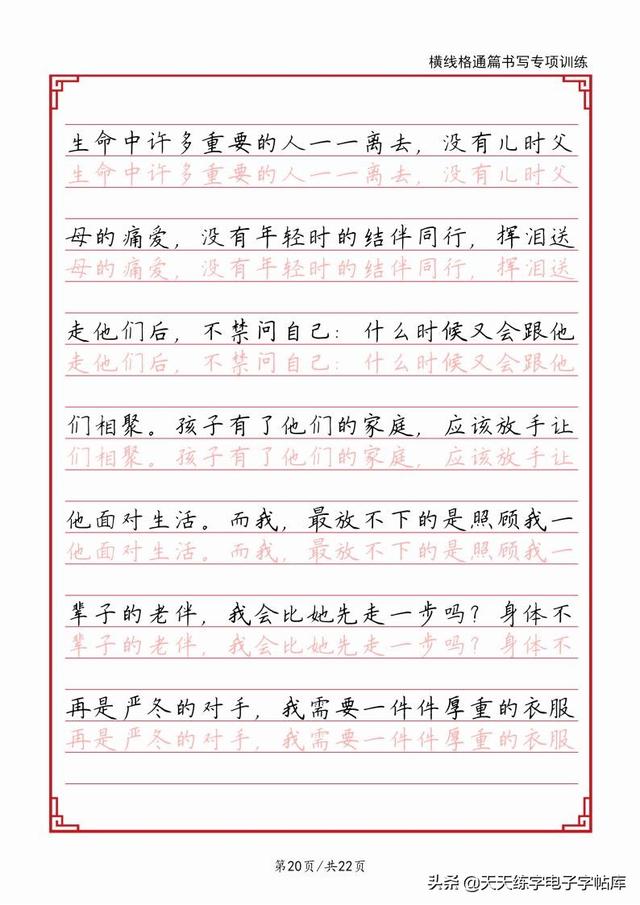 横线格通篇书写专项训练
生命中许多重要的人一一离去，没有儿时父
生命中许多重要的人一一离去，没有儿时父
母的痛爱，没有年轻时的结伴同行，挥泪送
母的痛爱，没有年轻时的结伴同行，挥泪送
走他们后，不禁问自己：什么时候又会跟他
走他们后，不禁问自己：什么时候又会跟他
们相聚。孩子有了他们的家庭，应该放手让
们相聚。孩子有了他们的家庭，应该放手让
他面对生活。而我，最放不下的是照顾我一
他面对生活。而我，最放不下的是照顾我一
辈子的老伴，我会比她先走一步吗？身体不
辈子的老伴，我会比她先走一步吗？身体不
再是严冬的对手，我需要一件件厚重的衣服
再是严冬的对手，我需要一件件厚重的衣服
第20页/共22页
头条@天天练字电子字帖库